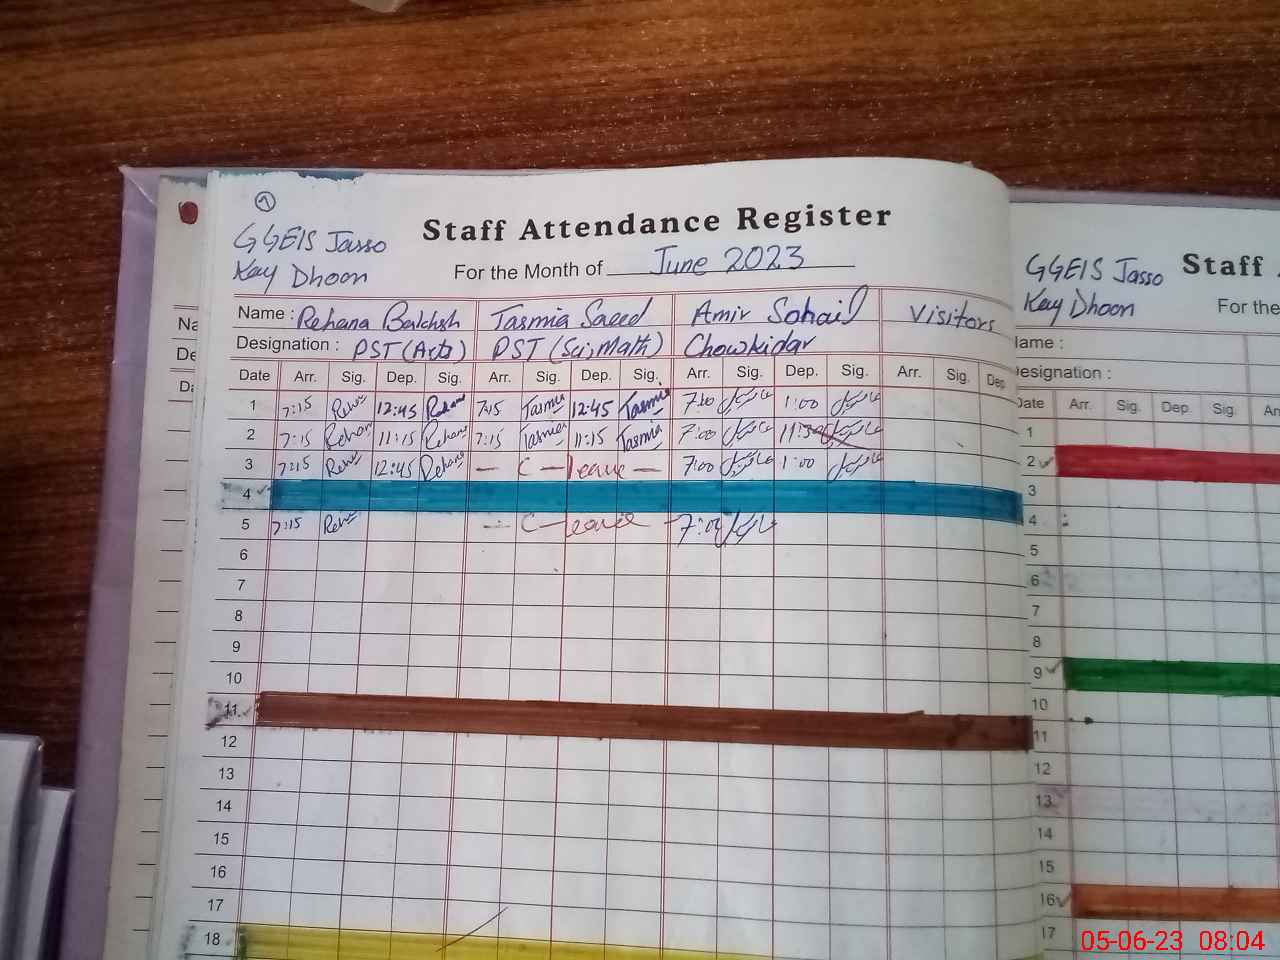 1
GGEIS Jasso
Kay Dhoon
Staff Attendance Register
For the Month of June 2023
Name : Rehana Bakhsh Tasmia Saeed Amir Sohail Visitors
Designation : PST (Arts) PST (Sci, Math) Chowkidar
Date Arr. Sig. Dep. Sig. Arr. Sig. Dep. Sig. Arr. Sig. Dep. Sig. Arr. Sig. Dep.
1 7:15 Rehana 12:45 Rehana 7:15 Tasmia 12:45 Tasmia 7:00 1:00
2 7:15 Rehana 11:15 Rehana 7:15 Tasmia 11:15 Tasmia 7:00 11:30
3 7:15 Rehana 12:45 Rehana — C — leave — 7:00 1:00
4
5 7:15 Rehana — C — leave — 7:00
6
7
8
9
10
11
12
13
14
15
16
17
18
Na
De
Da
GGEIS Jasso
Kay Dhoon
Staff
For the
Name :
Designation :
Date Arr. Sig. Dep. Sig.
1
2
3
4
5
6
7
8
9
10
11
12
13
14
15
16
17
05-06-23 08:04